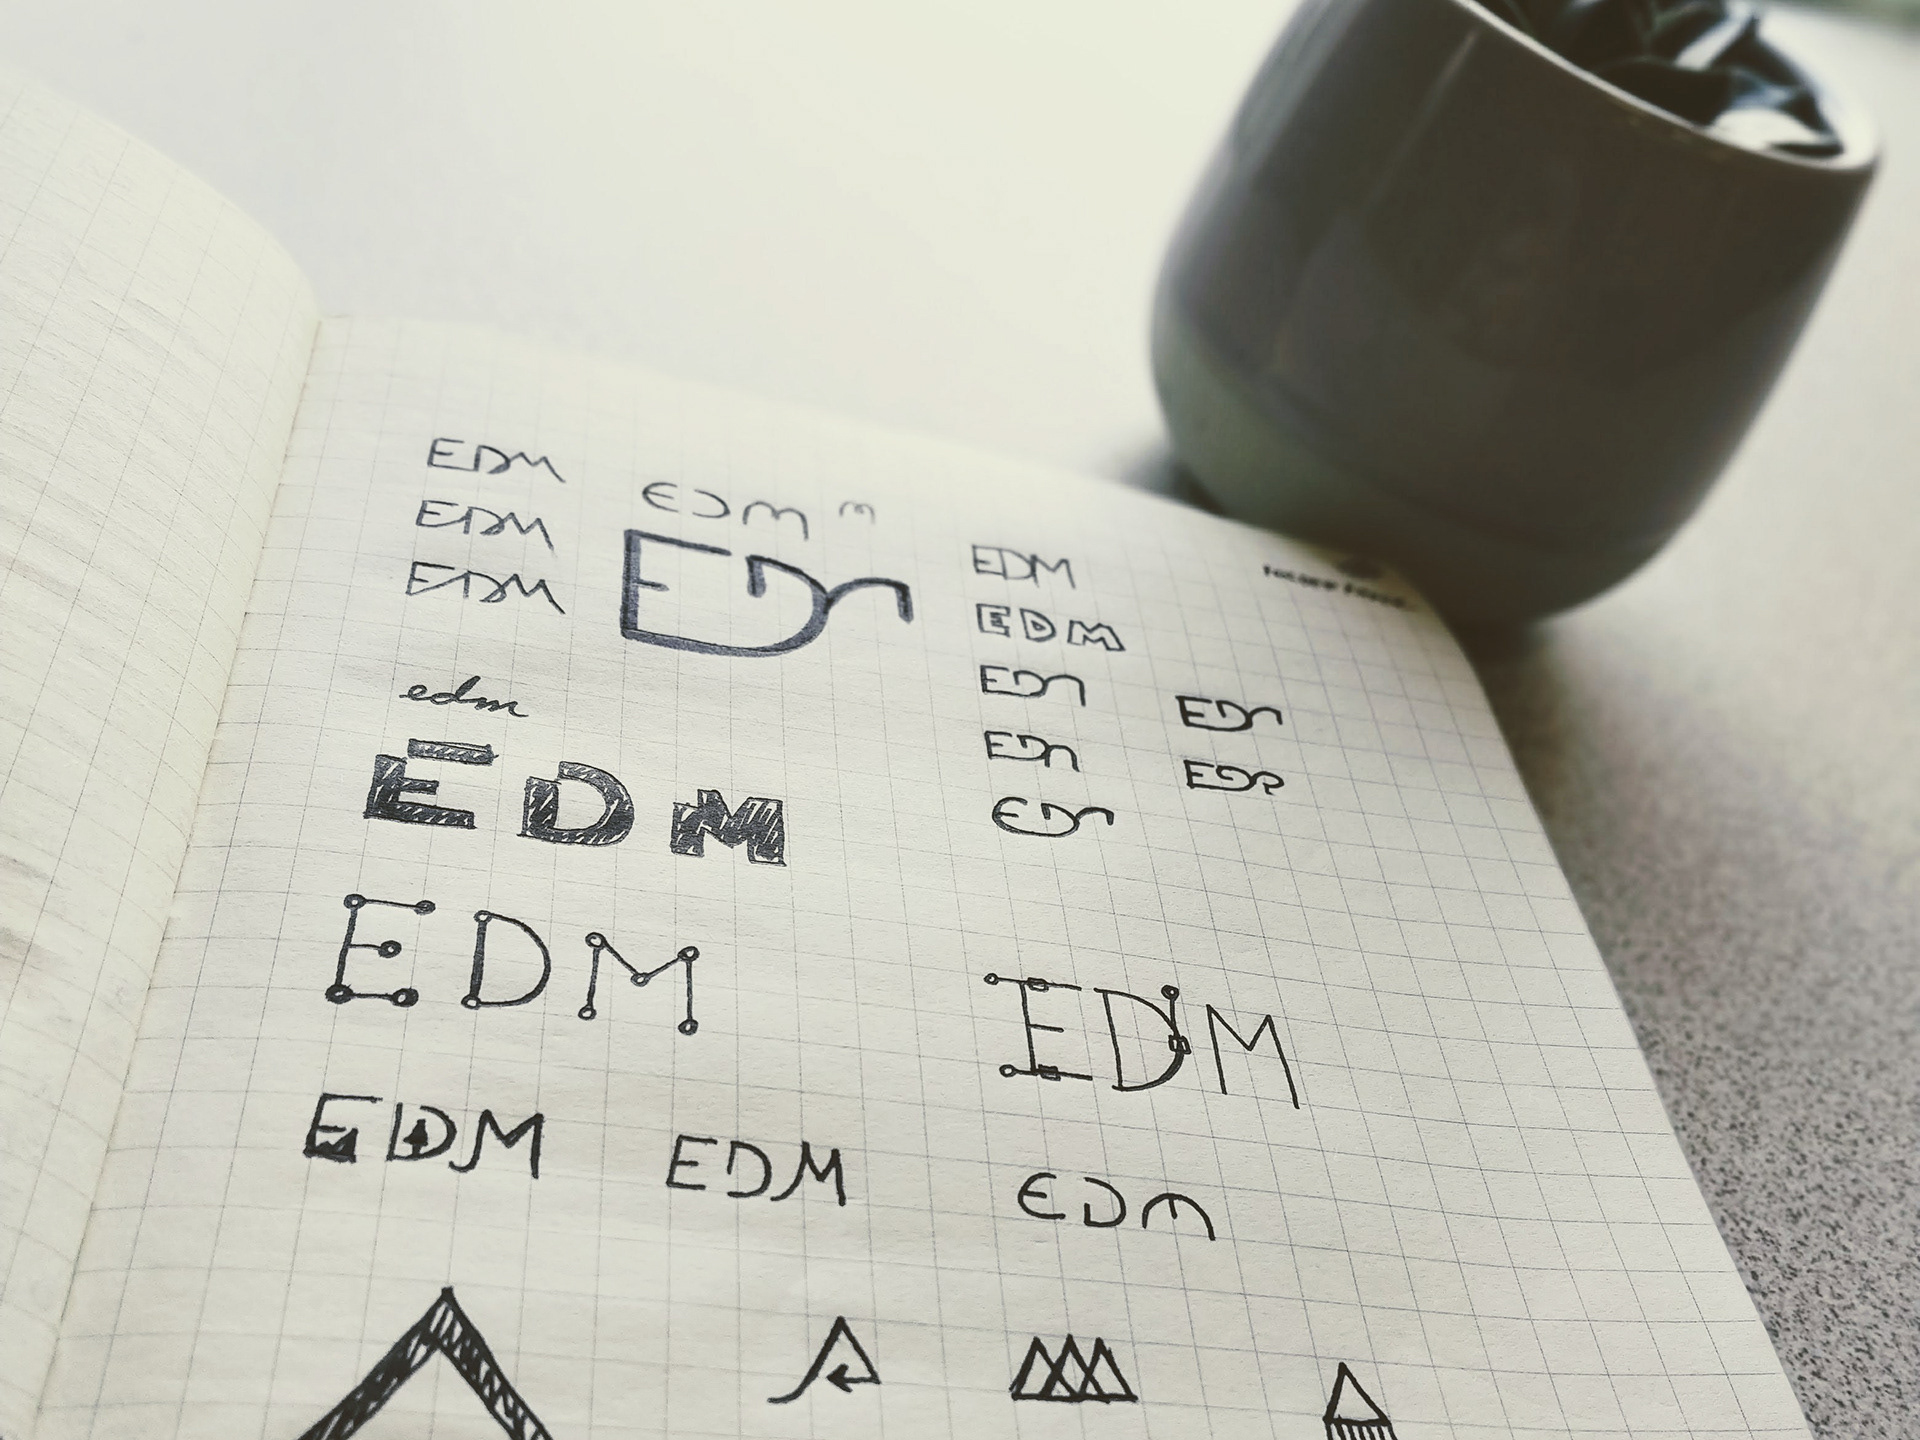 EDM
EDM
EDM
EDM m
EDM
edm
EDM
EDM
EDM
EDM
EDM
EDM
EDM
EDM
EDM
EDM
EDM
EDM
EDM
EDM